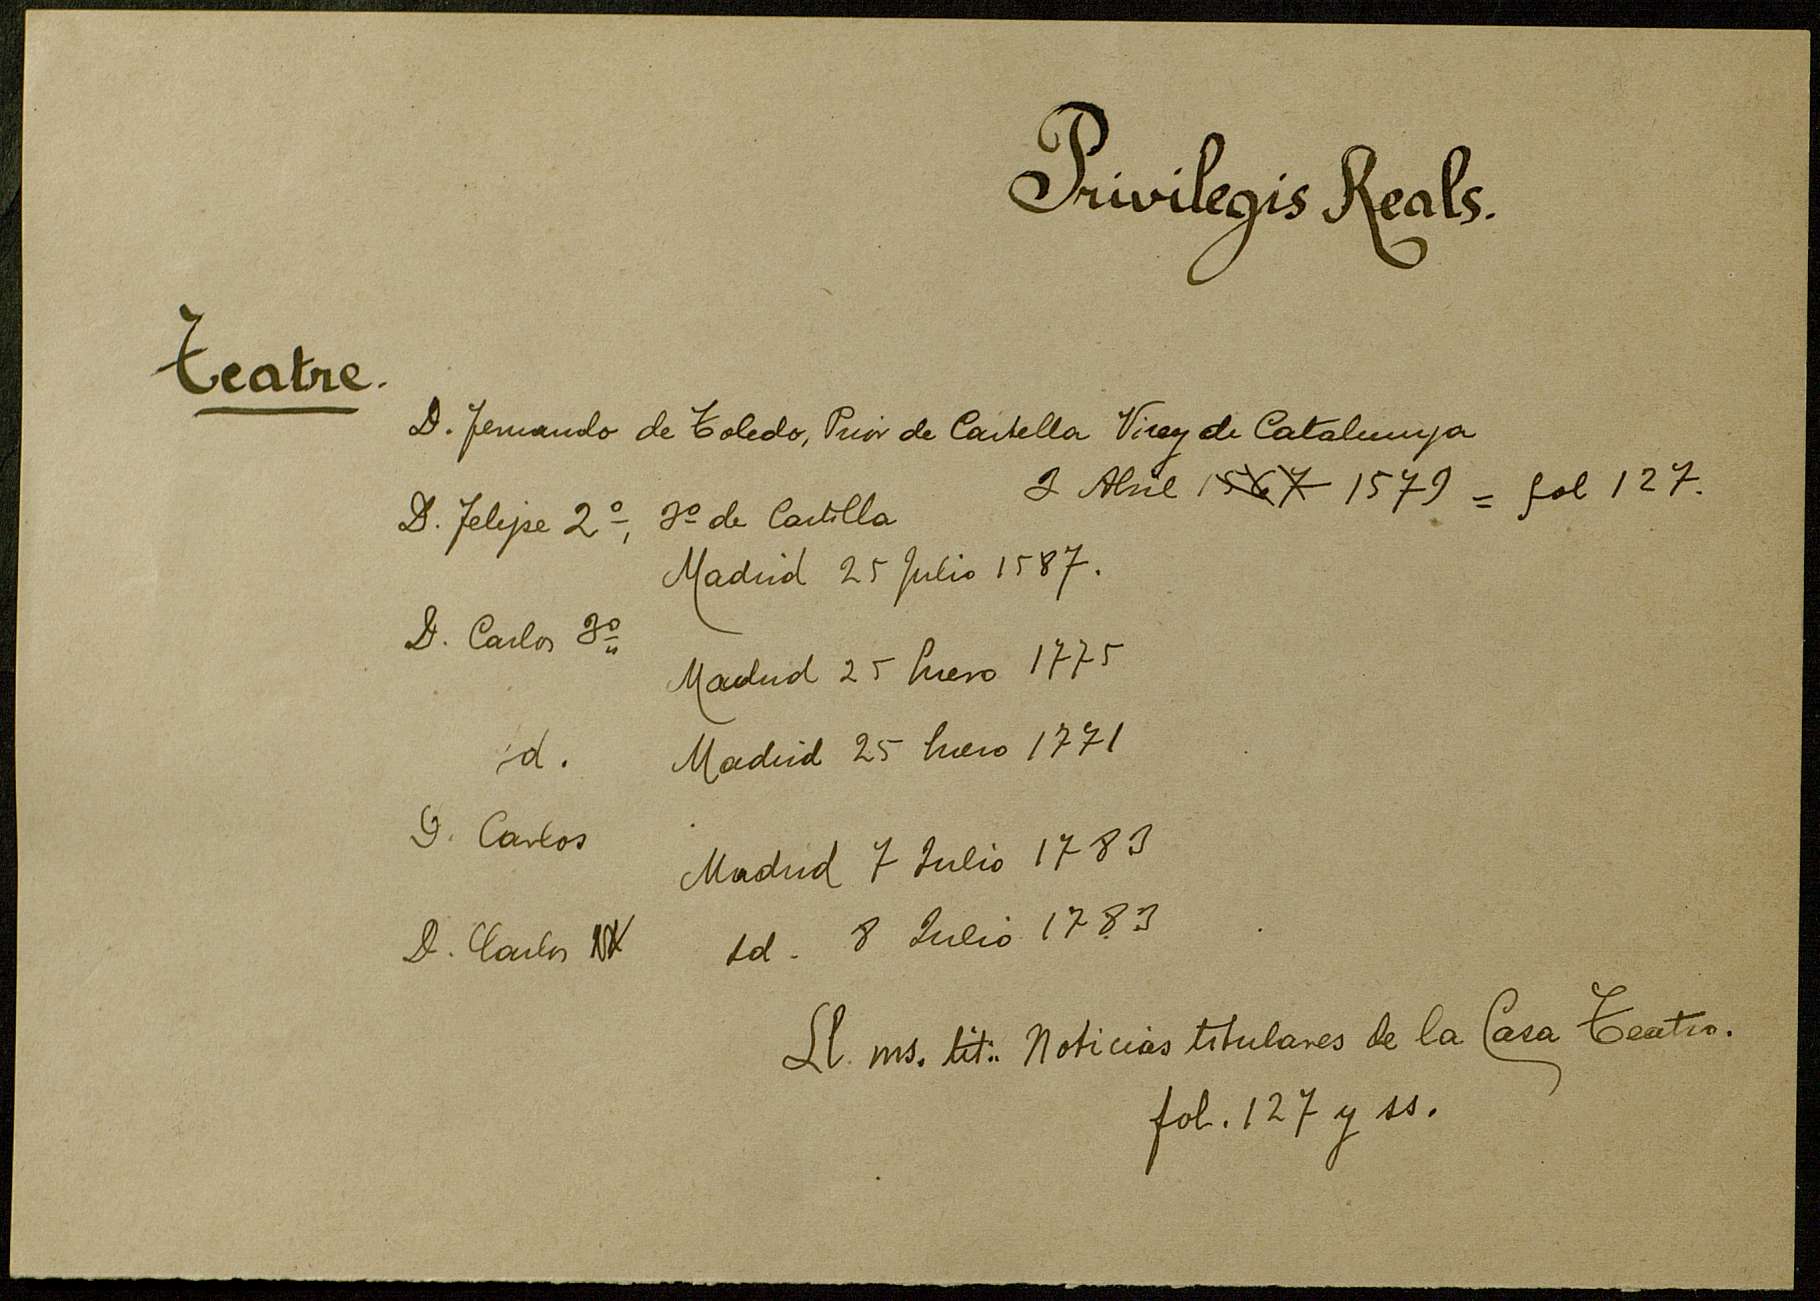 Privilegis Reals.
Teatre.
D. Fernando de Toledo, Prior de Castella Virey de Catalunya
2 Abril 1567 1579 = fol 127.
D. Felipe 2º, 3º de Castilla
Madrid 25 Julio 1587.
D. Carlos 3º
Madrid 25 Enero 1775
id. Madrid 25 Enero 1771
D. Carlos
Madrid 7 Julio 1783
D. Carlos Id. 8 Julio 1783
Ll. ms. tit.: Noticias titulares de la Casa Teatro.
fol. 127 y ss.